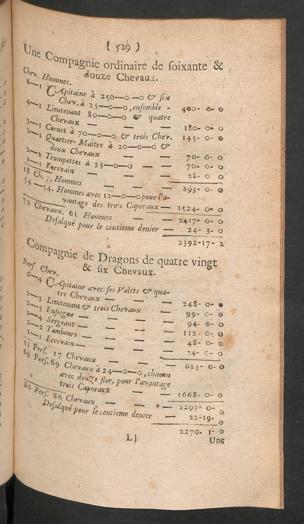 ( 529 )
Une Compagnie ordinaire de soixante &
douze Chevaux.
Chev. Hommes.
6—1 CApitaine à 250—0—0 & six
Chev. à 25—0—0, ensemble - 400- 0- 0
4—1 Lieutenant 80—0—0 & quatre
Chevaux — — — 180- 0- 0
3—1 Cornet à 70—0—0 & trois Chev. 145- 0- 0
2—1 Quartier-Maître à 20—0—0 &
deux Chevaux — — 70- 0- 0
2— Trompettes à 35—0—0 — 70- 0- 0
1—1 Ecrivain — — — 28- 0- 0
18 Ch. Hommes — — 893- 0- 0
54—54. Hommes avec 12—0—0 pour l'avantage
des trois Caporaux — 1524- 0- 0
72 Chevaux. 61 Hommes — 2417- 0- 0
Desalqué pour le centieme denier — 24- 3- 0
2392-17- 2
Compagnie de Dragons de quatre vingt
& six Chevaux.
Pers. Chev.
4 CApitaine avec ses Valets & quatre
Chevaux — — 248- 0- 0
3 Lieutenant & trois Chevaux 99- 0- 0
Enseigne — — — 94- 0- 0
Sergeant — — — 112- 0- 0
Tambours — — — 48- 0- 0
1 Ecrivain — — —
11 Pers. 17 Chevaux — — 625- 0- 0
69 Pers. 69 Chevaux à 24—0—0, chacun
avec douze flor. pour l'avantage
trois Caporaux — — 1668- 0- 0
80 Pers. 86 Chevaux — — 2293- 0- 0
Desalqué pour le centieme denier — 22-19-
2270- 1- 0
Une